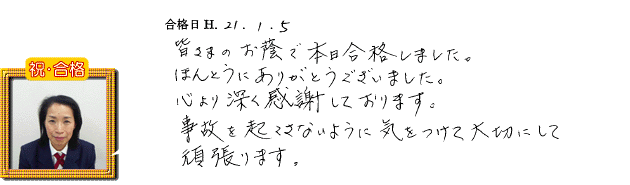 合格日 H. 21. 1. 5
皆さまのお蔭で本日合格しました。
ほんとうにありがとうございました。
心より深く感謝しております。
事故を起こさないように気をつけて大切にして
頑張ります。
祝・合格